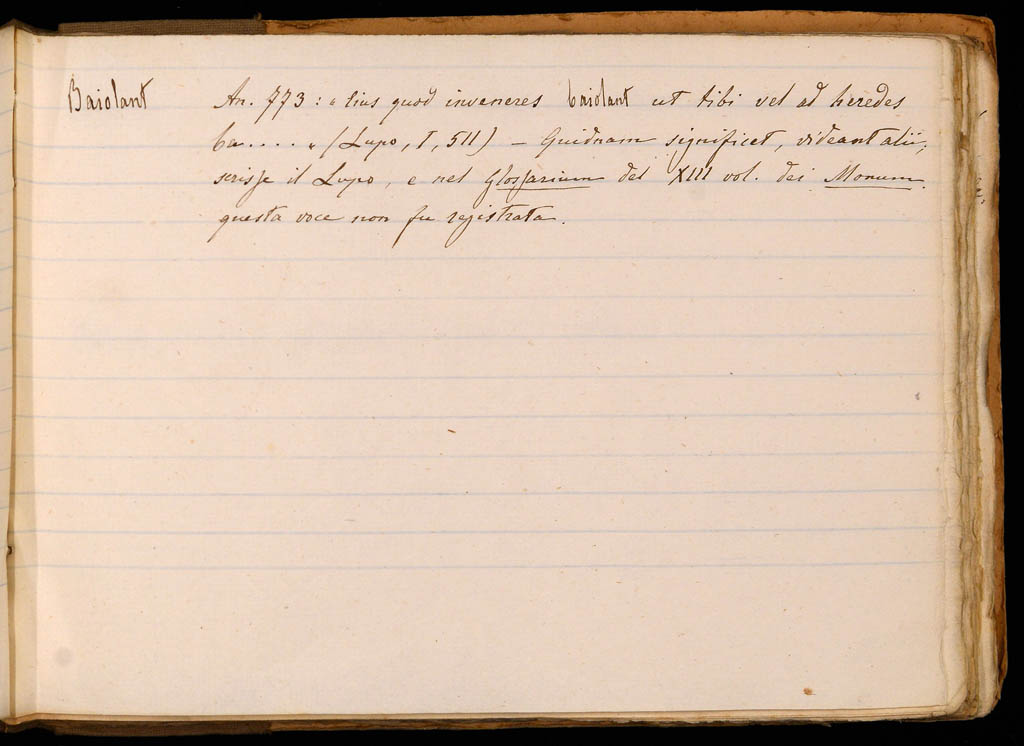 Baiolant An. 773: « tius quod inveneres baiolant ut tibi vel ad heredes
ba.... » (Lupo, I, 511) – Quidnam significet, videant alii;
scrisse il Lupo, e nel Glossarium del XIII vol. dei Monum.
questa voce non fu registrata.